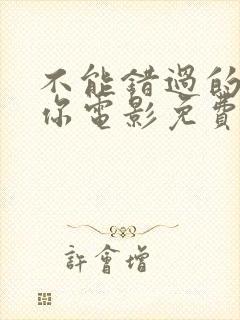 不能錯過的
你電影免費
許會增